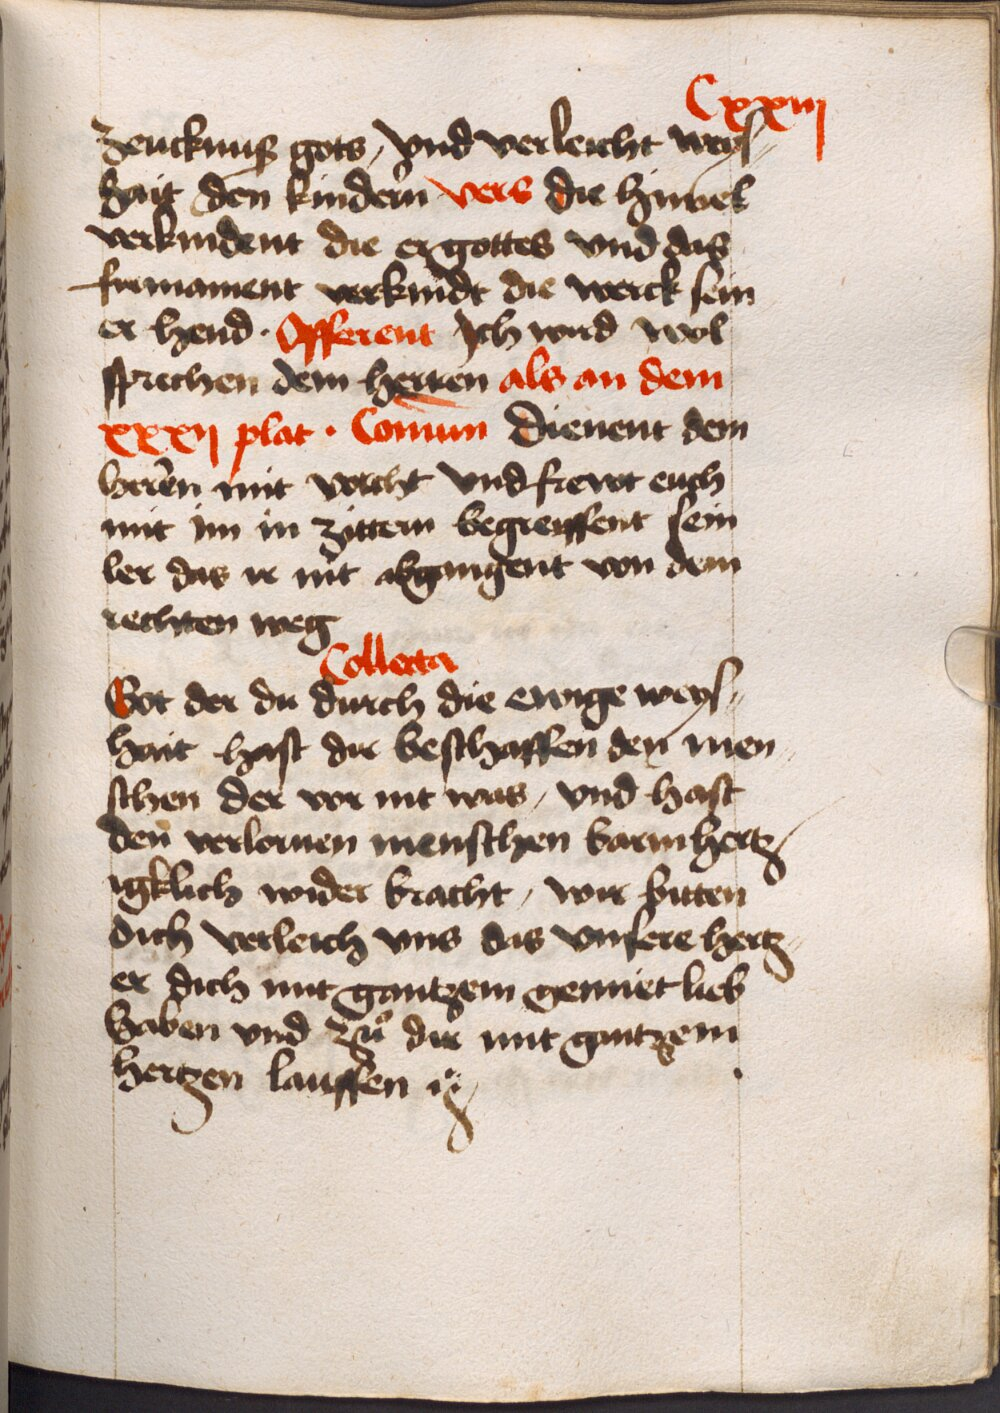 Cxxiij
zeucknuß gots / vnd verleicht weyß
hait den kindern vers die himel
verkindent die er gottes vnd das
firmament verkindt die werck sein
er hend · Offerent Ich wird wol
sprechen dem herren als an dem
xxxij plat · Comun Dienent dem
heren mit vorcht vnd frewt euch
mit im in zittern begreiffent sein
ler das ir nit abgangent von dem
rechten weg
Collecta
Got der du durch die ewige weyß
hait hast die beschaffen den men
schen der vor nit was / vnd hast
den verlornen menschen barmhertz
igklich wider bracht / wir bitten
dich verleich vns das vnsere hertz
er dich mit gantzem gemiet lieb
haben vnd zů dir mit gantzem
hertzen lauffen